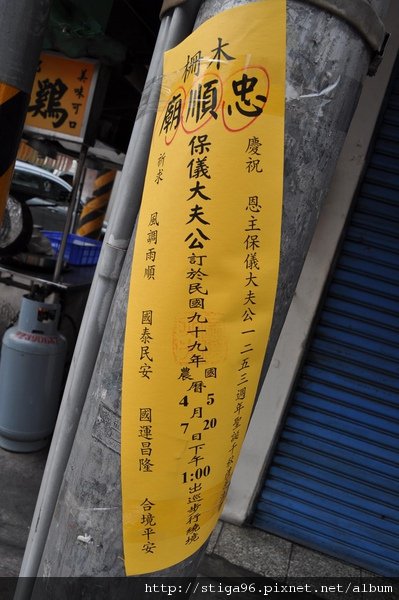 木柵
忠順廟
慶祝 恩主保儀大夫公一二五三週年聖誕千秋
保儀大夫公訂於民國九十九年
國農
曆
5 4
月
20 7
日下午
1:00
出巡步行繞境
祈求 風調雨順 國泰民安 國運昌隆 合境平安
美味可口
雞
http://stiga96.pixnet.net/album